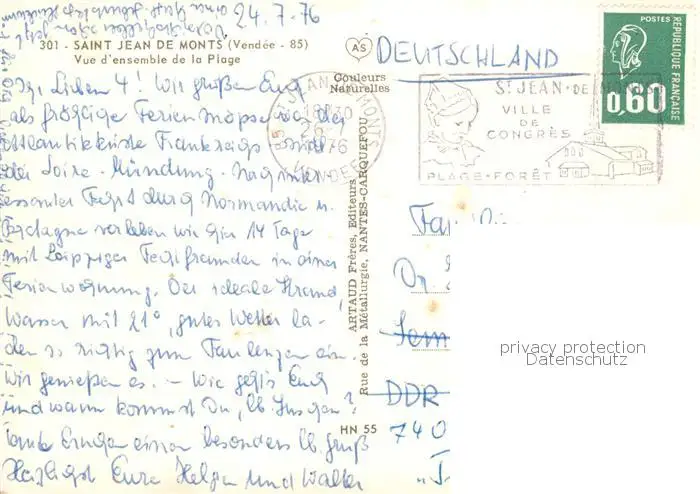 24.7.76
301 - SAINT JEAN DE MONTS (Vendée - 85)
Vue d'ensemble de la Plage
AS
Couleurs
Naturelles
DEUTSCHLAND
POSTES
RÉPUBLIQUE FRANÇAISE
0,60
ST JEAN DE MONTS
VILLE
DE
CONGRÈS
PLAGE - FORÊT
Ihr Lieben 4! Wir grüßen Euch
als fröhliche Ferienmöpse von der
Atlantikküste Frankreichs südl.
der Loire-Mündung. Nach inter-
essanter Fahrt durch Normandie u.
Bretagne verleben wir hier 14 Tage
mit Leipziger Freunden in einer
Ferienwohnung. Der ideale Strand,
Wasser mit 21°, gutes Wetter la-
den so richtig zum Faulenzen ein.
Wir genießen es. - Wie geht's Euch
und wann kommst Du, lb.
Tante einen besonders lb. Gruß
Herzlichst Eure Helga und Walter
ARTAUD Frères, Editeurs
Rue de la Métallurgie, NANTES-CARQUEFOU
HN 55
Dr.
DDR
740
privacy protection
Datenschutz